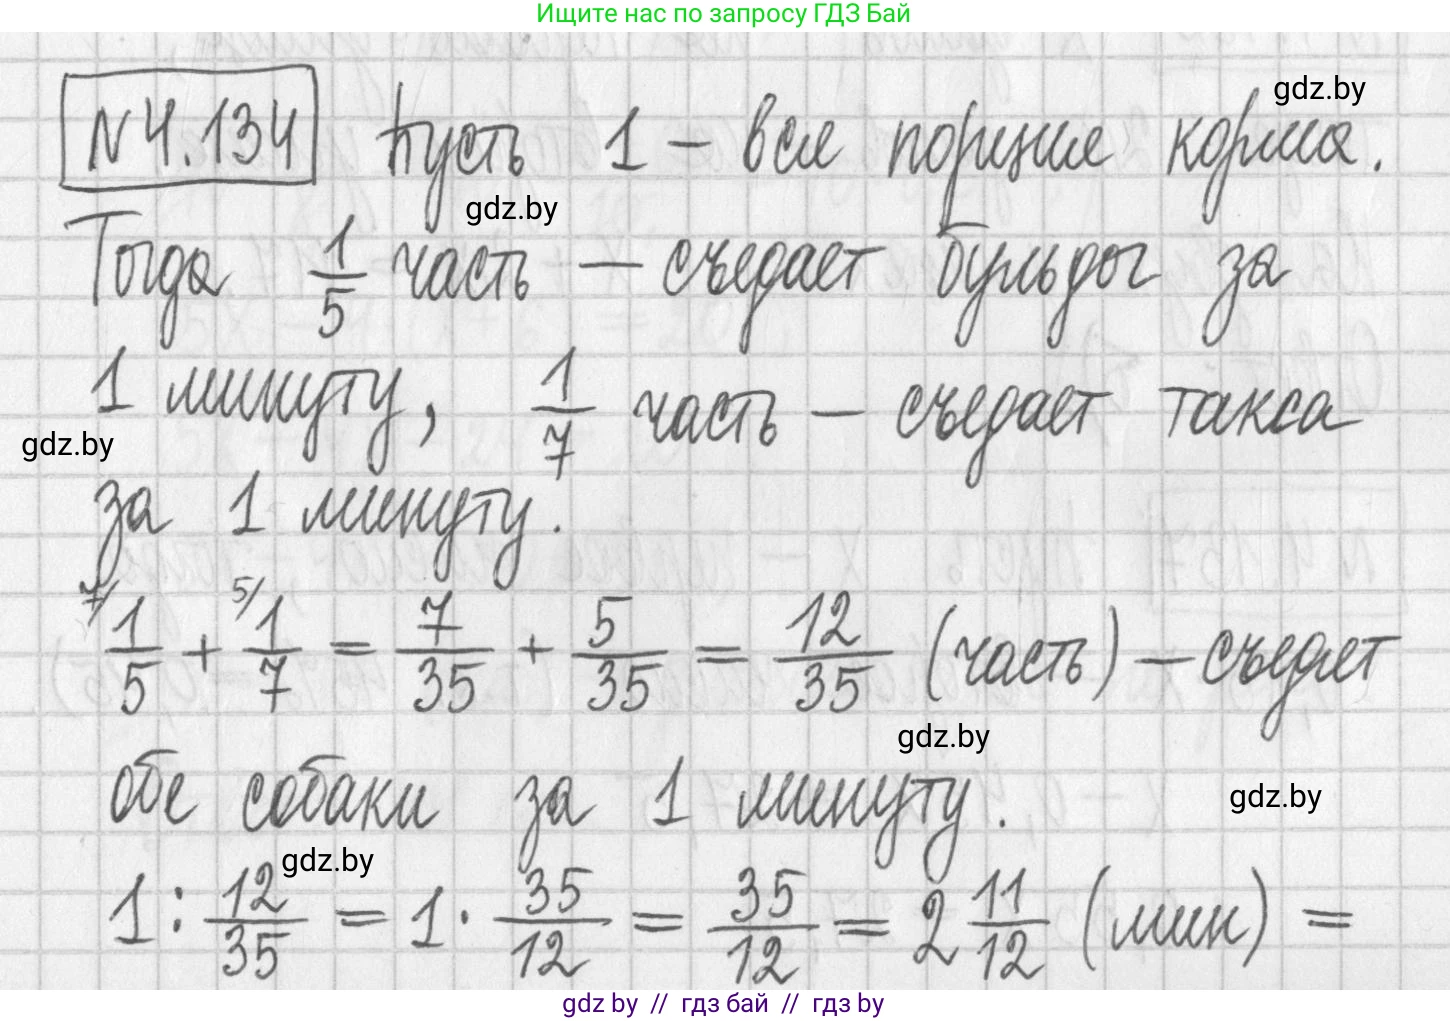 Ищите нас по запросу ГДЗ Бай
gdz.by
N4.134 Пусть 1 – вся порция корма.
gdz.by
Тогда 1/5 часть – съедает бульдог за
1 минуту, 1/7 часть – съедает такса
gdz.by
за 1 минуту.
7/ 1/5 + 5/ 1/7 = 7/35 + 5/35 = 12/35 (часть) – съедят
gdz.by
обе собаки за 1 минуту.
gdz.by
gdz.by
1 : 12/35 = 1 · 35/12 = 35/12 = 2 11/12 (мин) =
gdz by // гдз бай // гдз by